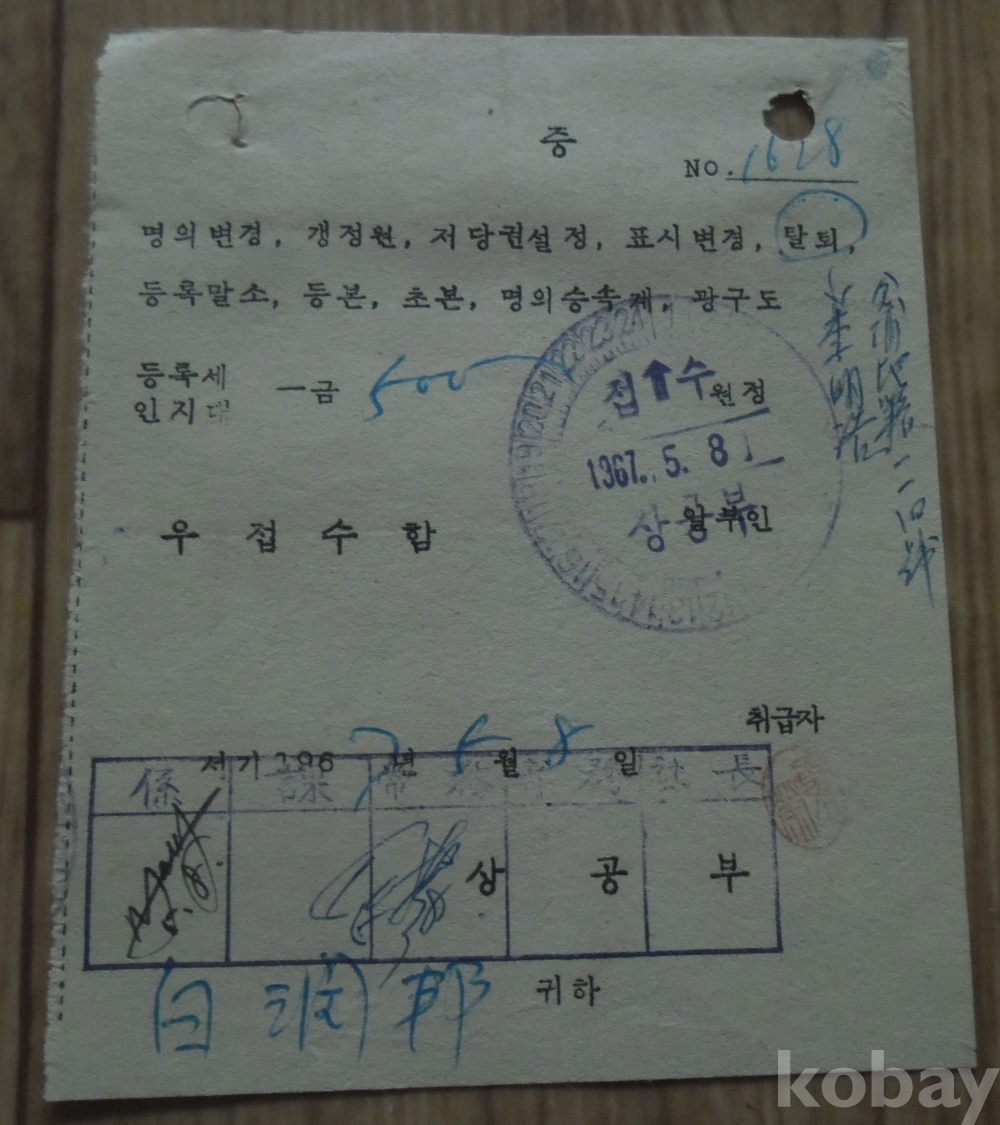 증
NO. 1628
명의변경, 갱정원, 저당권설정, 표시변경, 탈퇴,
등록말소, 등본, 초본, 명의승속계, 광구도
李明浩
등록세
인지대
一금 500 원정
접수
1967. 5. 8
상공부
우 접 수 함
취급자
서기 1967년 5월 8일
係 課 長
상 공 부
白潤邦 귀하
kobay